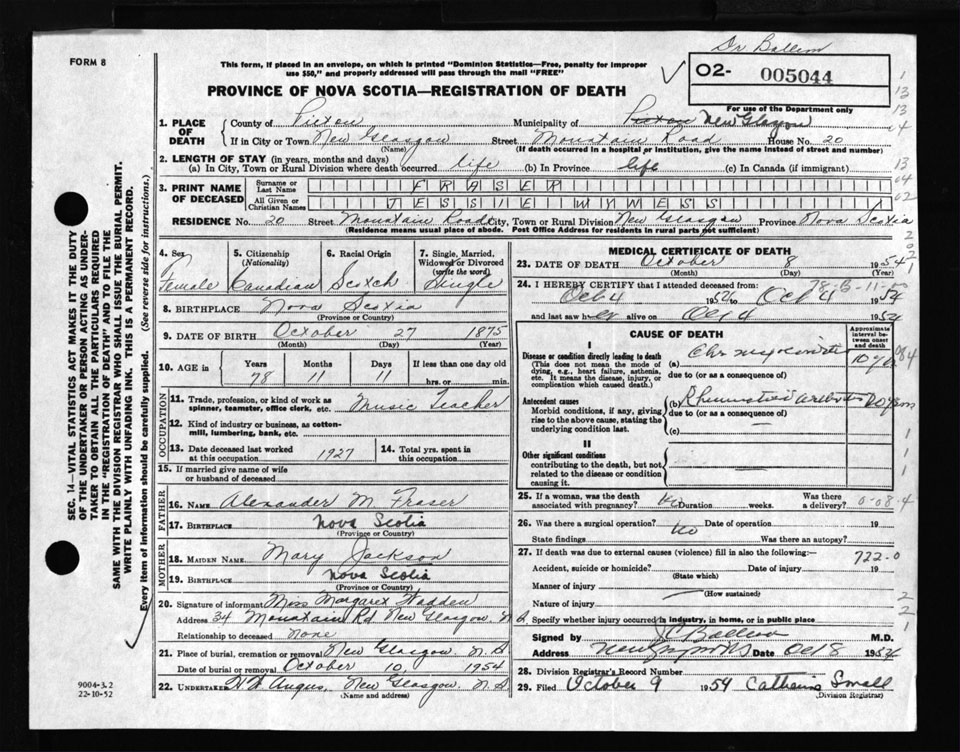 Dr Ballem
FORM 8
This form, if placed in an envelope, on which is printed "Dominion Statistics—Free, penalty for improper
use $50," and properly addressed will pass through the mail "FREE"
02- 005044
PROVINCE OF NOVA SCOTIA—REGISTRATION OF DEATH
For use of the Department only
1. PLACE OF DEATH
County of Pictou Municipality of Pictou New Glasgow
If in City or Town New Glasgow Street Mountain Road House No. 20
(Name) (If death occurred in a hospital or institution, give the name instead of street and number)
2. LENGTH OF STAY (in years, months and days)
(a) In City, Town or Rural Division where death occurred life (b) In Province life (c) In Canada (if immigrant)
3. PRINT NAME OF DECEASED
Surname or Last Name FRASER
All Given or Christian Names JESSIE WYNESS
RESIDENCE No. 20 Street Mountain Road City, Town or Rural Division New Glasgow Province Nova Scotia
(Residence means usual place of abode. Post Office Address for residents in rural parts not sufficient)
4. Sex Female
5. Citizenship (Nationality) Canadian
6. Racial Origin Scotch
7. Single, Married, Widowed or Divorced (write the word) Single
8. BIRTHPLACE Nova Scotia
(Province or Country)
9. DATE OF BIRTH October 27 1875
(Month) (Day) (Year)
10. AGE in Years 78 Months 11 Days 11 If less than one day old hrs. or min.
OCCUPATION
11. Trade, profession, or kind of work as spinner, teamster, office clerk, etc. Music Teacher
12. Kind of industry or business, as cotton-mill, lumbering, bank, etc.
13. Date deceased last worked at this occupation 1927
14. Total yrs. spent in this occupation
15. If married give name of wife or husband of deceased
FATHER
16. NAME Alexander M. Fraser
17. BIRTHPLACE Nova Scotia
(Province or Country)
MOTHER
18. MAIDEN NAME Mary Jackson
19. BIRTHPLACE Nova Scotia
(Province or Country)
20. Signature of informant Miss Margaret Wadden
Address 34 Mountain Rd New Glasgow, N S.
Relationship to deceased none
21. Place of burial, cremation or removal New Glasgow N.S.
Date of burial or removal October 10, 1954
22. UNDERTAKER Angus, New Glasgow. N.S
(Name and address)
MEDICAL CERTIFICATE OF DEATH
23. DATE OF DEATH October 8 1954
(Month) (Day) (Year)
24. I HEREBY CERTIFY that I attended deceased from:
78-B-11-
Oct 4 1954 to Oct 4 1954
and last saw her alive on Oct 4 1954
CAUSE OF DEATH
Approximate interval between onset and death
I
Disease or condition directly leading to death
(This does not mean the mode of dying, e.g., heart failure, asthenia, etc. It means the disease, injury, or complication which caused death.)
(a) Chr myocarditis 10 yrs
due to (or as a consequence of)
Antecedent causes
Morbid conditions, if any, giving rise to the above cause, stating the underlying condition last.
(b) Rheumatoid arthritis 20 yrs
due to (or as a consequence of)
(c)
II
Other significant conditions
contributing to the death, but not related to the disease or condition causing it.
25. If a woman, was the death associated with pregnancy? No Duration weeks. Was there a delivery? 0-08-4
26. Was there a surgical operation? No Date of operation 19
State findings Was there an autopsy?
27. If death was due to external causes (violence) fill in also the following:— 722-0
Accident, suicide or homicide? Date of injury 19
(State which)
Manner of injury
(How sustained)
Nature of injury
Specify whether injury occurred in industry, in home, or in public place
Signed by J C Ballem M.D.
Address New Glasgow NS Date Oct 8 1954
28. Division Registrar's Record Number
29. Filed October 9 1954 Catharine Small
(Division Registrar)
SEC. 14—VITAL STATISTICS ACT MAKES IT THE DUTY
OF THE UNDERTAKER OR PERSON ACTING AS UNDER-
TAKER TO OBTAIN ALL THE PARTICULARS REQUIRED
IN THE "REGISTRATION OF DEATH" AND TO FILE THE
SAME WITH THE DIVISION REGISTRAR WHO SHALL ISSUE THE BURIAL PERMIT.
WRITE PLAINLY WITH UNFADING INK. THIS IS A PERMANENT RECORD.
Every item of information should be carefully supplied. (See reverse side for instructions.)
9004-3.2
22-10-52